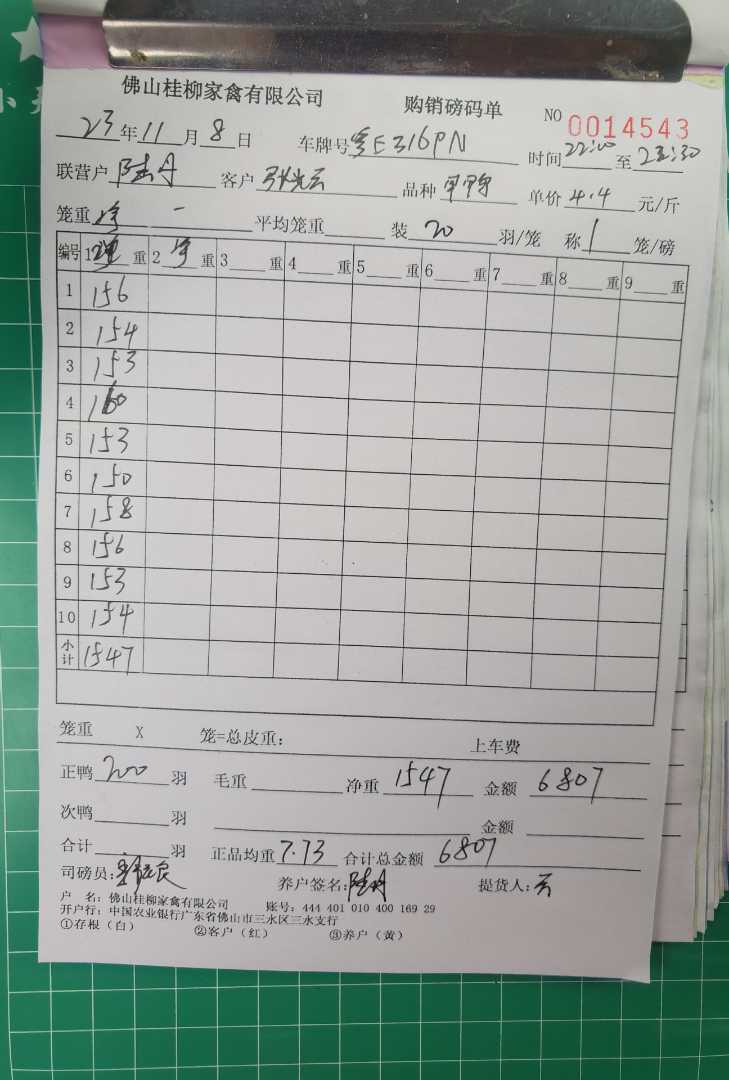 佛山桂柳家禽有限公司 购销磅码单 NO 0014543
23年11月8日 车牌号粤E316PN 时间22:00至23:30
联营户 陆丹 客户 张光云 品种 单价4.4元/斤
笼重 平均笼重 装20羽/笼 称1笼/磅
编号 1 重 2 重 3 重 4 重 5 重 6 重 7 重 8 重 9 重
1 156
2 154
3 153
4 160
5 153
6 150
7 158
8 156
9 153
10 154
小计 1547
笼重 X 笼=总皮重: 上车费
正鸭200羽 毛重 净重1547 金额6807
次鸭 羽 金额
合计 羽 正品均重7.73 合计总金额6807
司磅员: 养户签名:陆丹 提货人:云
户 名: 佛山桂柳家禽有限公司 账号: 444 401 010 400 169 29
开户行: 中国农业银行广东省佛山市三水区三水支行
①存根(白) ②客户(红) ③养户(黄)